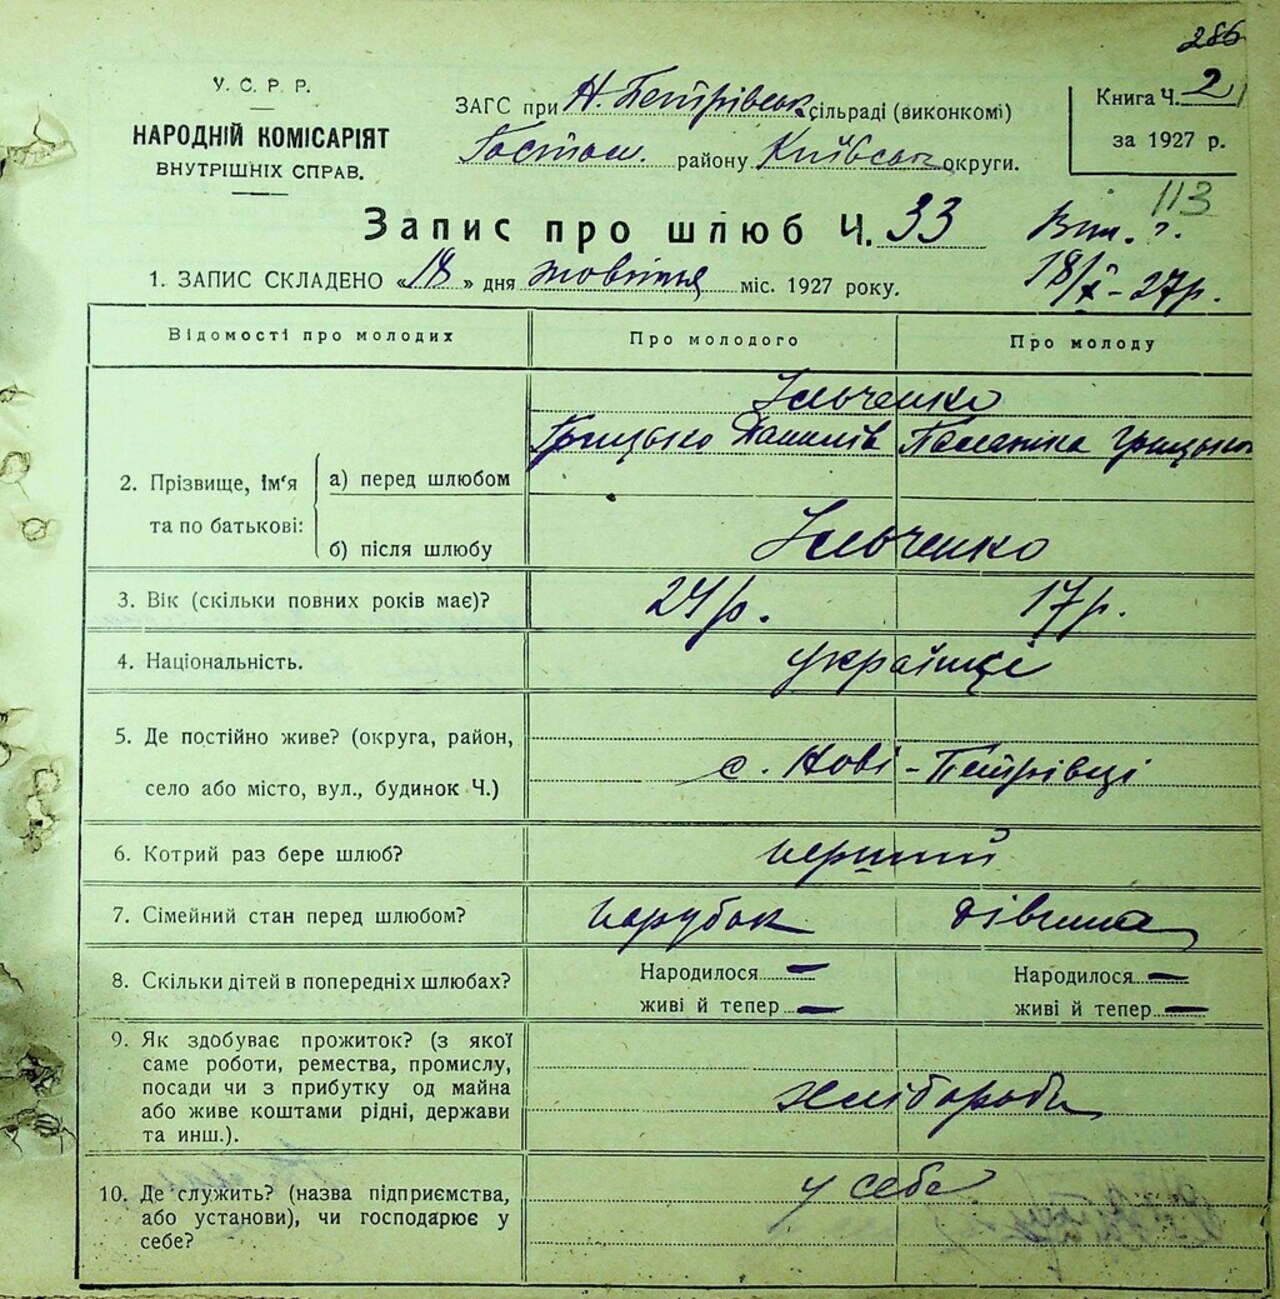 286
У. С. Р. Р.
НАРОДНІЙ КОМІСАРІЯТ
ВНУТРІШНІХ СПРАВ.
ЗАГС при Н. Петрівськ. сільраді (виконкомі)
Гостом. району Київськ округи.
Книга Ч. 2
за 1927 р.
113
Запис про шлюб Ч. 33
18/X-27р.
1. ЗАПИС СКЛАДЕНО «18» дня жовтня міс. 1927 року.
Відомості про молодих
Про молодого
Про молоду
2. Прізвище, Ім'я та по батькові:
а) перед шлюбом
Ільченко
Грицько Данилів
Грицьков
б) після шлюбу
Ільченко
3. Вік (скільки повних років має)?
24р.
17р.
4. Національність.
українці
5. Де постійно живе? (округа, район,
село або місто, вул., будинок Ч.)
с. Нові-Петрівці
6. Котрий раз бере шлюб?
перший
7. Сімейний стан перед шлюбом?
парубок
дівчина
8. Скільки дітей в попередніх шлюбах?
Народилося —
живі й тепер —
Народилося —
живі й тепер —
9. Як здобуває прожиток? (з якої
саме роботи, ремества, промислу,
посади чи з прибутку од майна
або живе коштами рідні, держави
та инш.).
хлібороби
10. Де служить? (назва підприємства,
або установи), чи господарює у
себе?
у себе